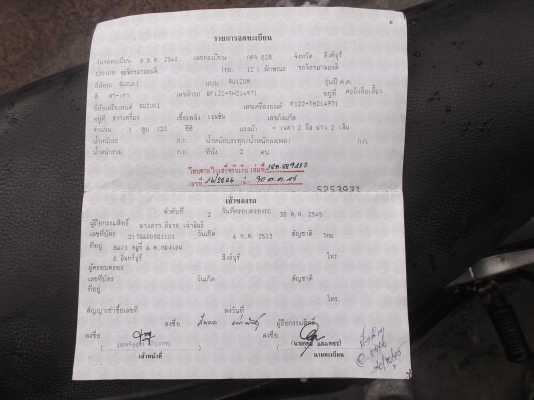 รายการจดทะเบียน
วันจดทะเบียน 8 ธ.ค. 2542 เลขทะเบียน กตจ 828 จังหวัด สิงห์บุรี
ประเภท รถจักรยานยนต์ (รย. 12) ลักษณะ รถจักรยานยนต์
ยี่ห้อรถ SUZUKI แบบ RU120M รุ่นปี ค.ศ.
สี ดำ-เทา เลขตัวรถ BF12C-TH214971 อยู่ที่ คอยึดตะเกียบ
ยี่ห้อเครื่องยนต์ SUZUKI เลขเครื่องยนต์ F122-TH214971
อยู่ที่ ขวาเครื่อง เชื้อเพลิง เบนซิน เลขถังแก๊ส
จำนวน 1 สูบ 120 ซีซี แรงม้า - เพลา 2 ล้อ ยาง 2 เส้น
น้ำหนักรถ ก.ก. น้ำหนักบรรทุก/น้ำหนักลงเพลา ก.ก.
น้ำหนักรวม ก.ก. ที่นั่ง 2 คน
โอนตามใบเสร็จรับเงิน เล่มที่
เลขที่ 30 ต.ค. 45
5253931
เจ้าของรถ
ลำดับที่ 2 วันที่ครอบครองรถ 30 ต.ค. 2545
ผู้ถือกรรมสิทธิ์
เลขที่บัตร 2170600001101 วันเกิด 6 ก.ค. 2513 สัญชาติ ไทย
ที่อยู่ 84/1 หมู่ที่ 6 ต.ทองเอน
อ.อินทร์บุรี สิงห์บุรี โทร.
ผู้ครอบครอง
เลขที่บัตร วันเกิด สัญชาติ
ที่อยู่
โทร.
สัญญาเช่าซื้อเลขที่ ลงวันที่
ลงชื่อ ผู้ถือกรรมสิทธิ์
ลงชื่อ ลงชื่อ
เจ้าหน้าที่ นายทะเบียน